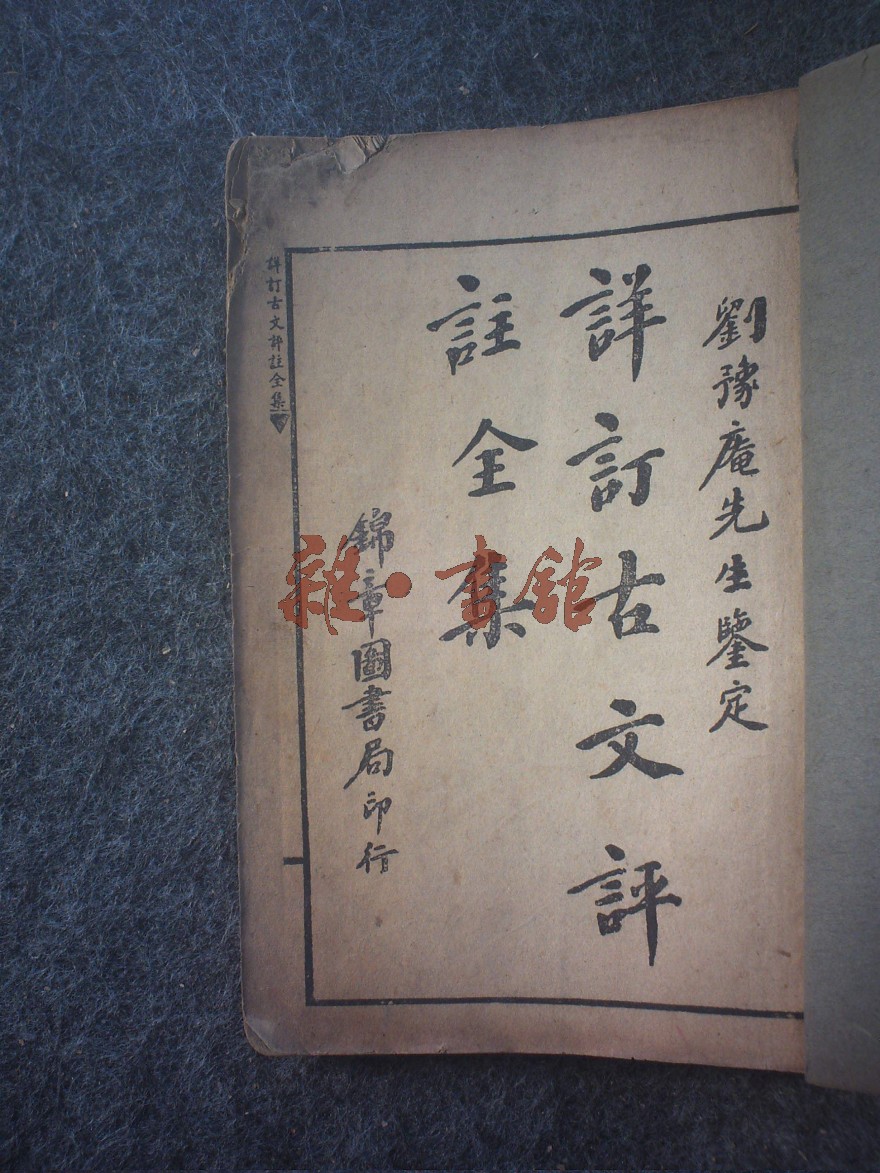 劉豫庵先生鑒定
詳訂古文評
註全集
錦章圖書局印行
詳訂古文評註全集
雜·書館